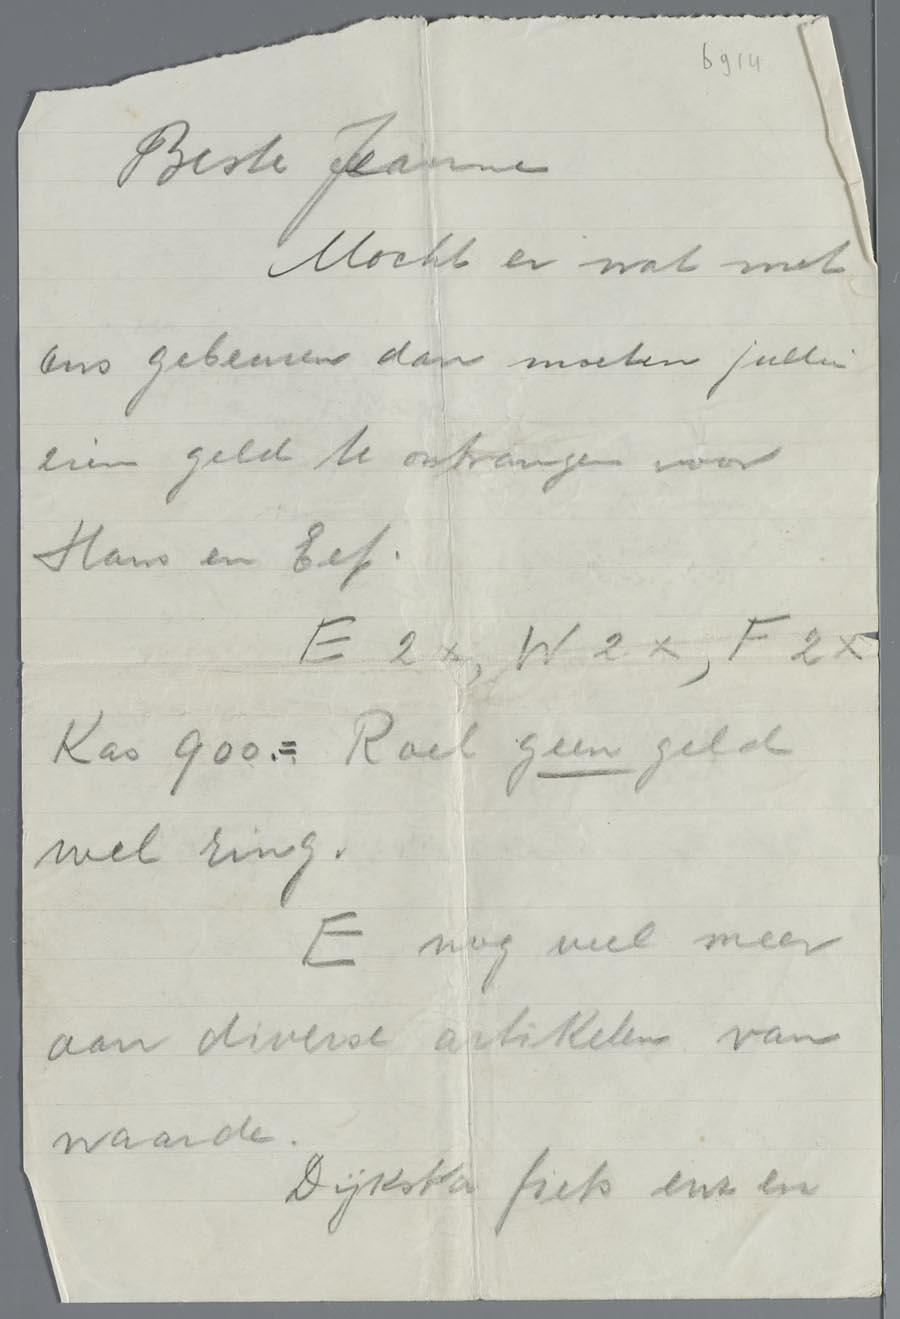 6914
Beste Jeanne
Mocht er wat met
ons gebeuren dan moeten jullie
zien geld te ontvangen voor
Hans en Eef.
E 2x, W 2x, F 2x
Kas 900.= Roel geen geld
wel ring.
E nog veel meer
aan diverse artikelen van
waarde.
Dijkstra fiets enz en